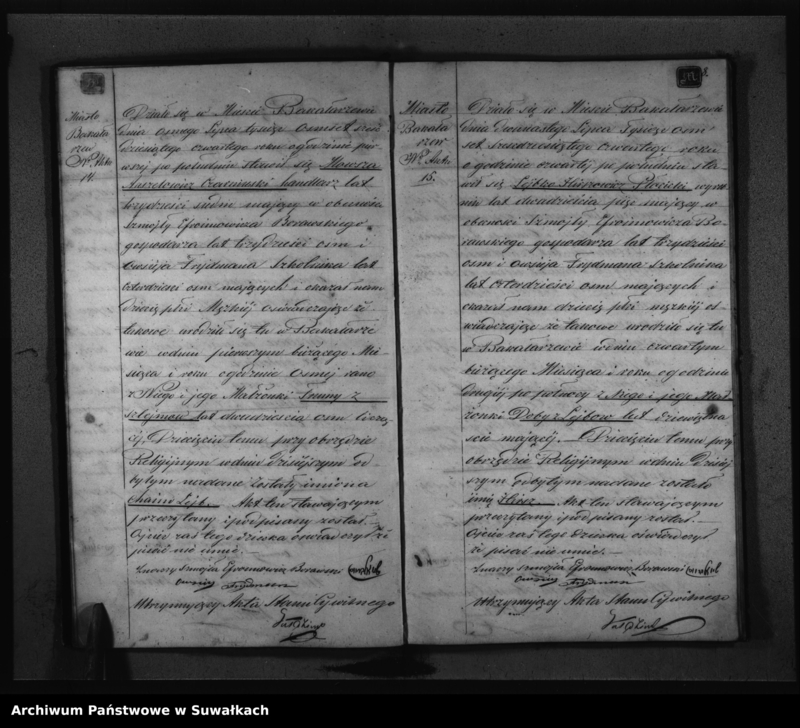 Miasto
Bakała
rzew
Nr. Aktu
14.
Działo się w Mieście Bakałarzewie
dnia ósmego Lipca tysiąc ośmset sześć
dziesiątego czwartego roku o godzinie pier
wszej po południu stawił się
handlarz lat
trzydzieści siedm mający w obecności
Szmojły Efroimowicza Borawskiego
gospodarza lat trzydzieści osm i
Owsieja Frydmana Szkolnika lat
czterdzieści osm mających i okazał nam
dziecię płci Męzkiej oświadczając że
takowe urodziło się tu w Bakałarze
wie w dniu pierwszym bieżącego Mie
siąca i roku o godzinie ósmej rano
z Niego i jego Małżonki z
Szlejmów lat dwadzieścia osm liczą
cej. Dziecięciu temu przy obrzędzie
Religijnym w dniu dzisiejszym od
bytym nadane zostały imiona
Chaim Lejb. Akt ten stawającym
przeczytany i podpisany został.
Ojciec zaś tego dziecka oświadczył że
pisać nie umie.
Szmojła Efroimowicz Borawski
Owsiej Frydman
Utrzymujący Akta Stanu Cywilnego
8.
Miasto
Bakała
rzew
Nr. Aktu
15.
Działo się w Mieście Bakałarzewie
dnia dwunastego Lipca Tysiąc ośm
set sześćdziesiątego czwartego roku
o godzinie czwartej po południu sta
wił się Lejbko Płocki wyro
bnik lat dwadzieścia pięć mający w
obecności Szmojły Efroimowicza Bo
rawskiego gospodarza lat trzydzieści
osm i Owsieja Frydmana Szkolnika
lat czterdzieści osm mających i
okazał nam dziecię płci męzkiej o
świadczając że takowe urodziło się tu
w Bakałarzewie w dniu czwartym
bieżącego Miesiąca i roku o godzinie
drugiej po północy z Niego i jego Mał
żonki Doby z Lejbów lat dziewiętna
ście mającej. Dziecięciu temu przy
obrzędzie Religijnym w dniu dzisiej
szym odbytym nadane zostało
imię. Akt ten stawającym
przeczytany i podpisany został.
Ojciec zaś tego dziecka oświadczył
że pisać nie umie.
Szmojła Efroimowicz Borawski
Owsiej Frydman
Utrzymujący Akta Stanu Cywilnego
Archiwum Państwowe w Suwałkach